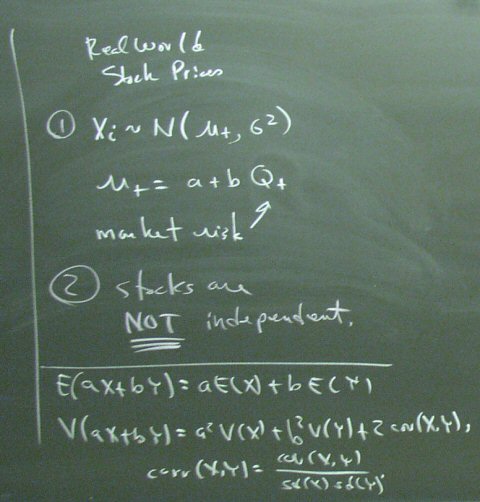 Real World
Stock Prices
① Xi ~ N(μt, σ²)
μt = a + b Qt
market risk
② stocks are
NOT independent.
E(aX+bY) = aE(X) + bE(Y)
V(aX+bY) = a²V(X) + b²V(Y) + 2 cov(X,Y),
corr(X,Y) = cov(X,Y) / sd(X) sd(Y)